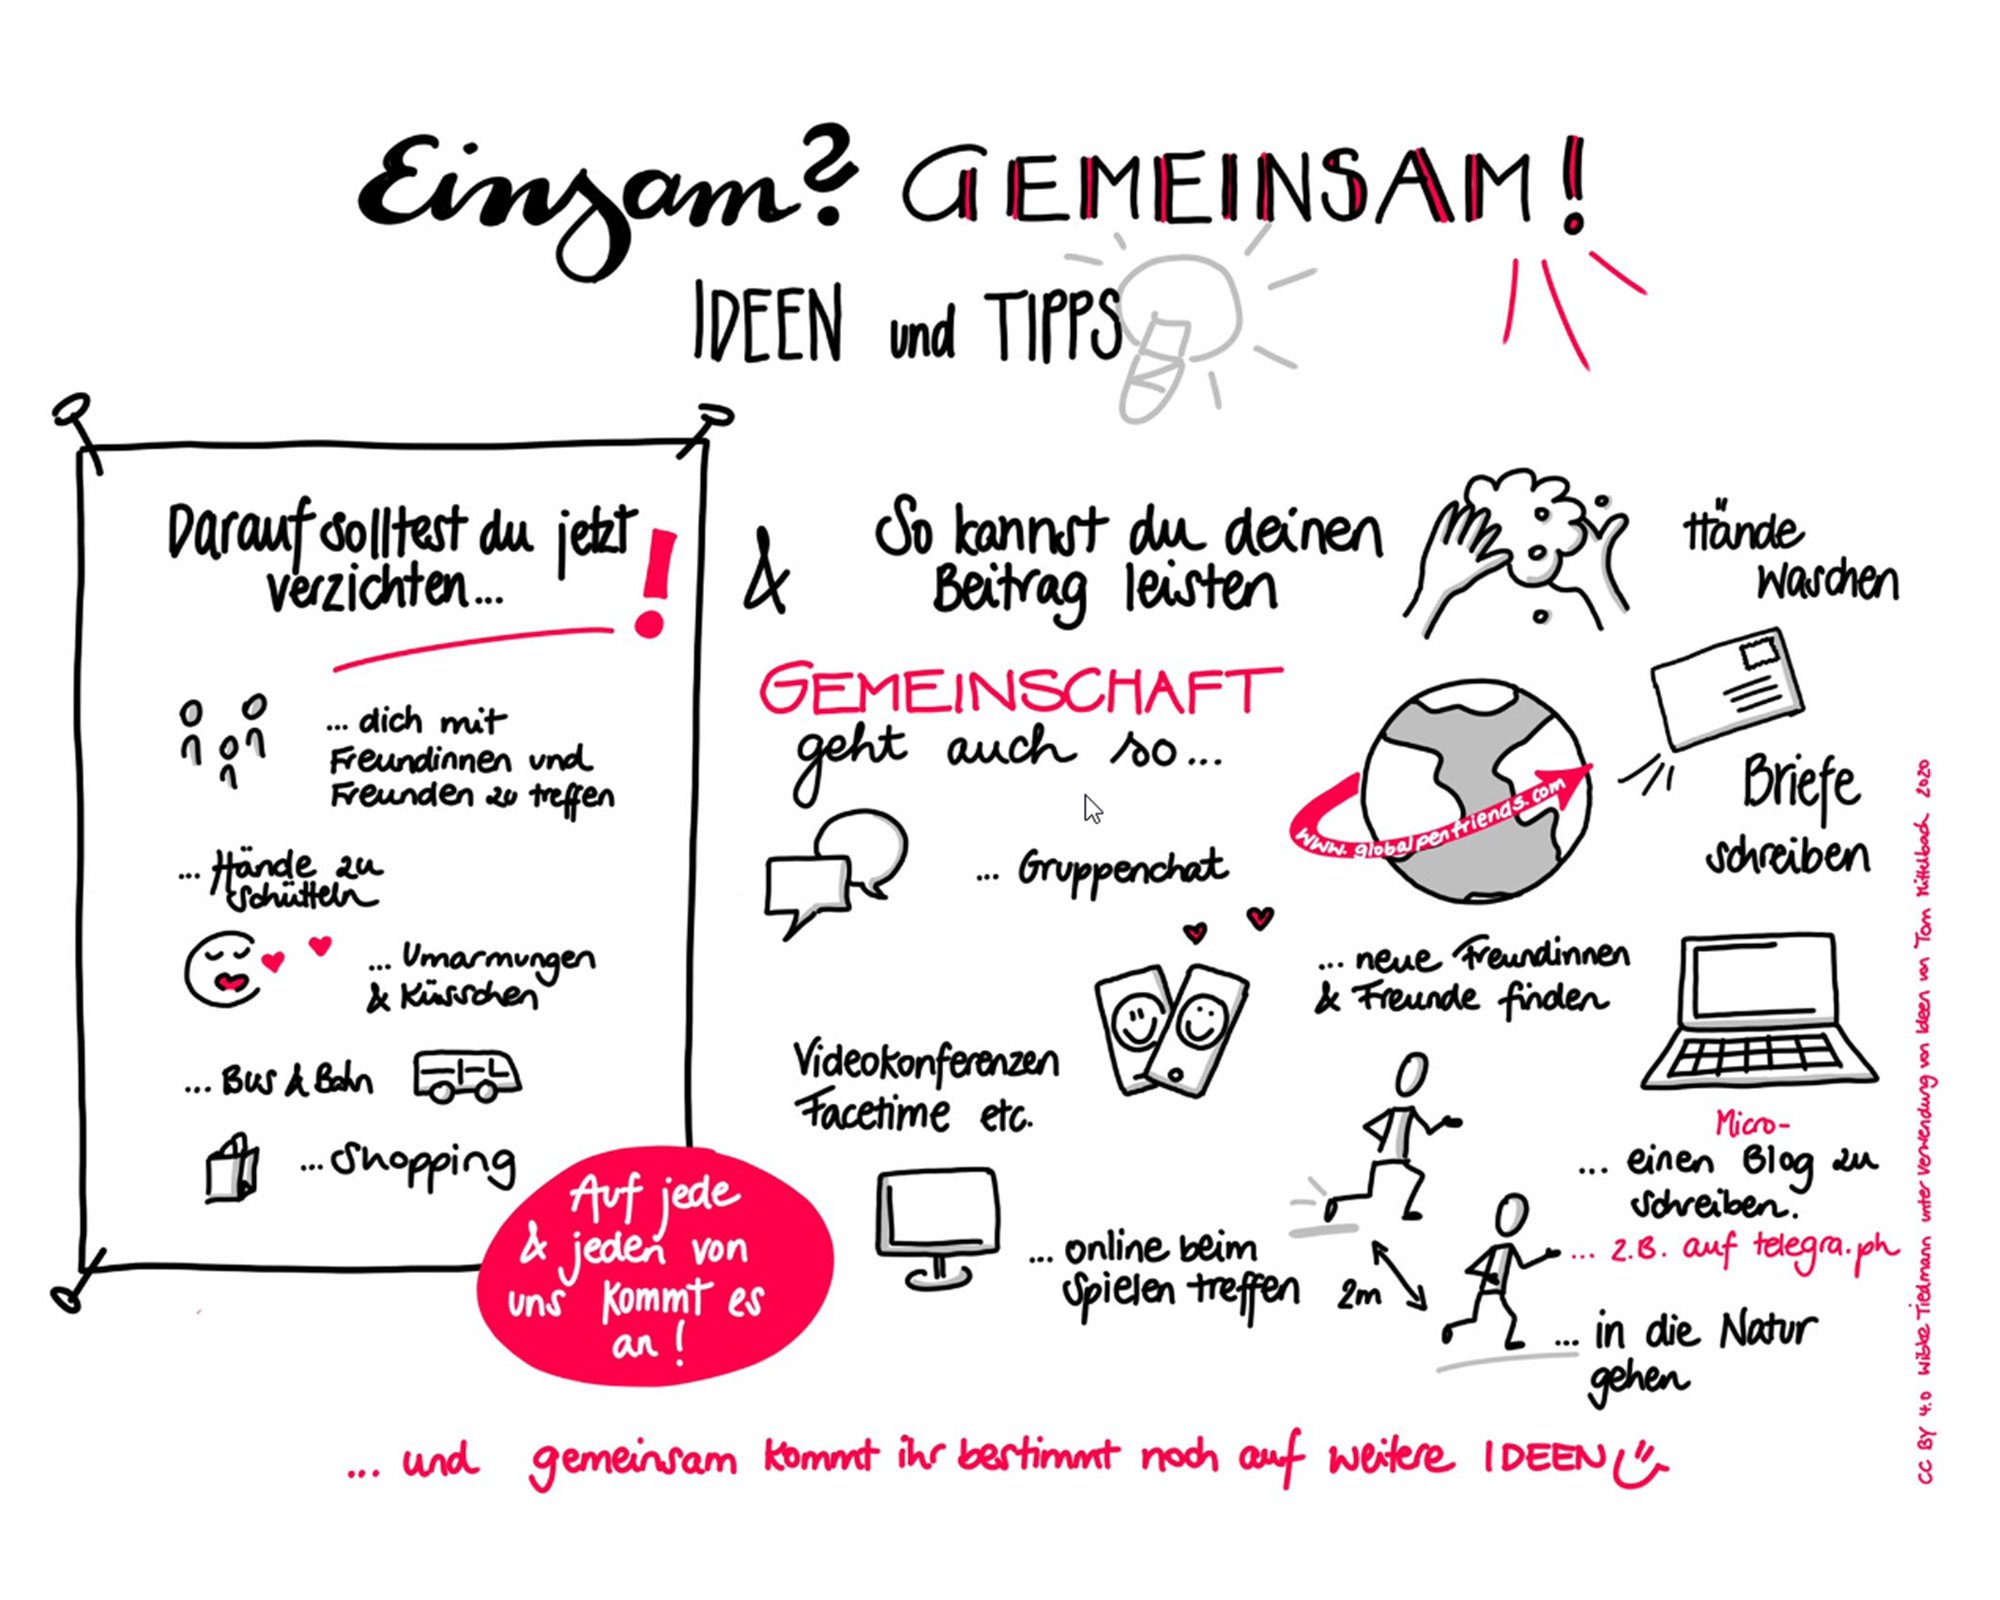 Einsam? GEMEINSAM!
IDEEN und TIPPS
Darauf solltest du jetzt
verzichten... !
... dich mit
Freundinnen und
Freunden zu treffen
... Hände zu
schütteln
... Umarmungen
& Küsschen
... Bus & Bahn
... Shopping
Auf jede
& jeden von
uns kommt es
an!
&
So kannst du deinen
Beitrag leisten
Hände
waschen
GEMEINSCHAFT
geht auch so...
... Gruppenchat
www.globalpenfriends.com
Briefe
schreiben
... neue Freundinnen
& Freunde finden
Videokonferenzen
Facetime etc.
... online beim
Spielen treffen
2m
Micro-
... einen Blog zu
schreiben.
... z.B. auf telegra.ph
... in die Natur
gehen
... und gemeinsam kommt ihr bestimmt noch auf weitere IDEEN
CC BY 4.0 Wibke Tiedmann unter Verwendung von Ideen von Tom Mittelbach 2020